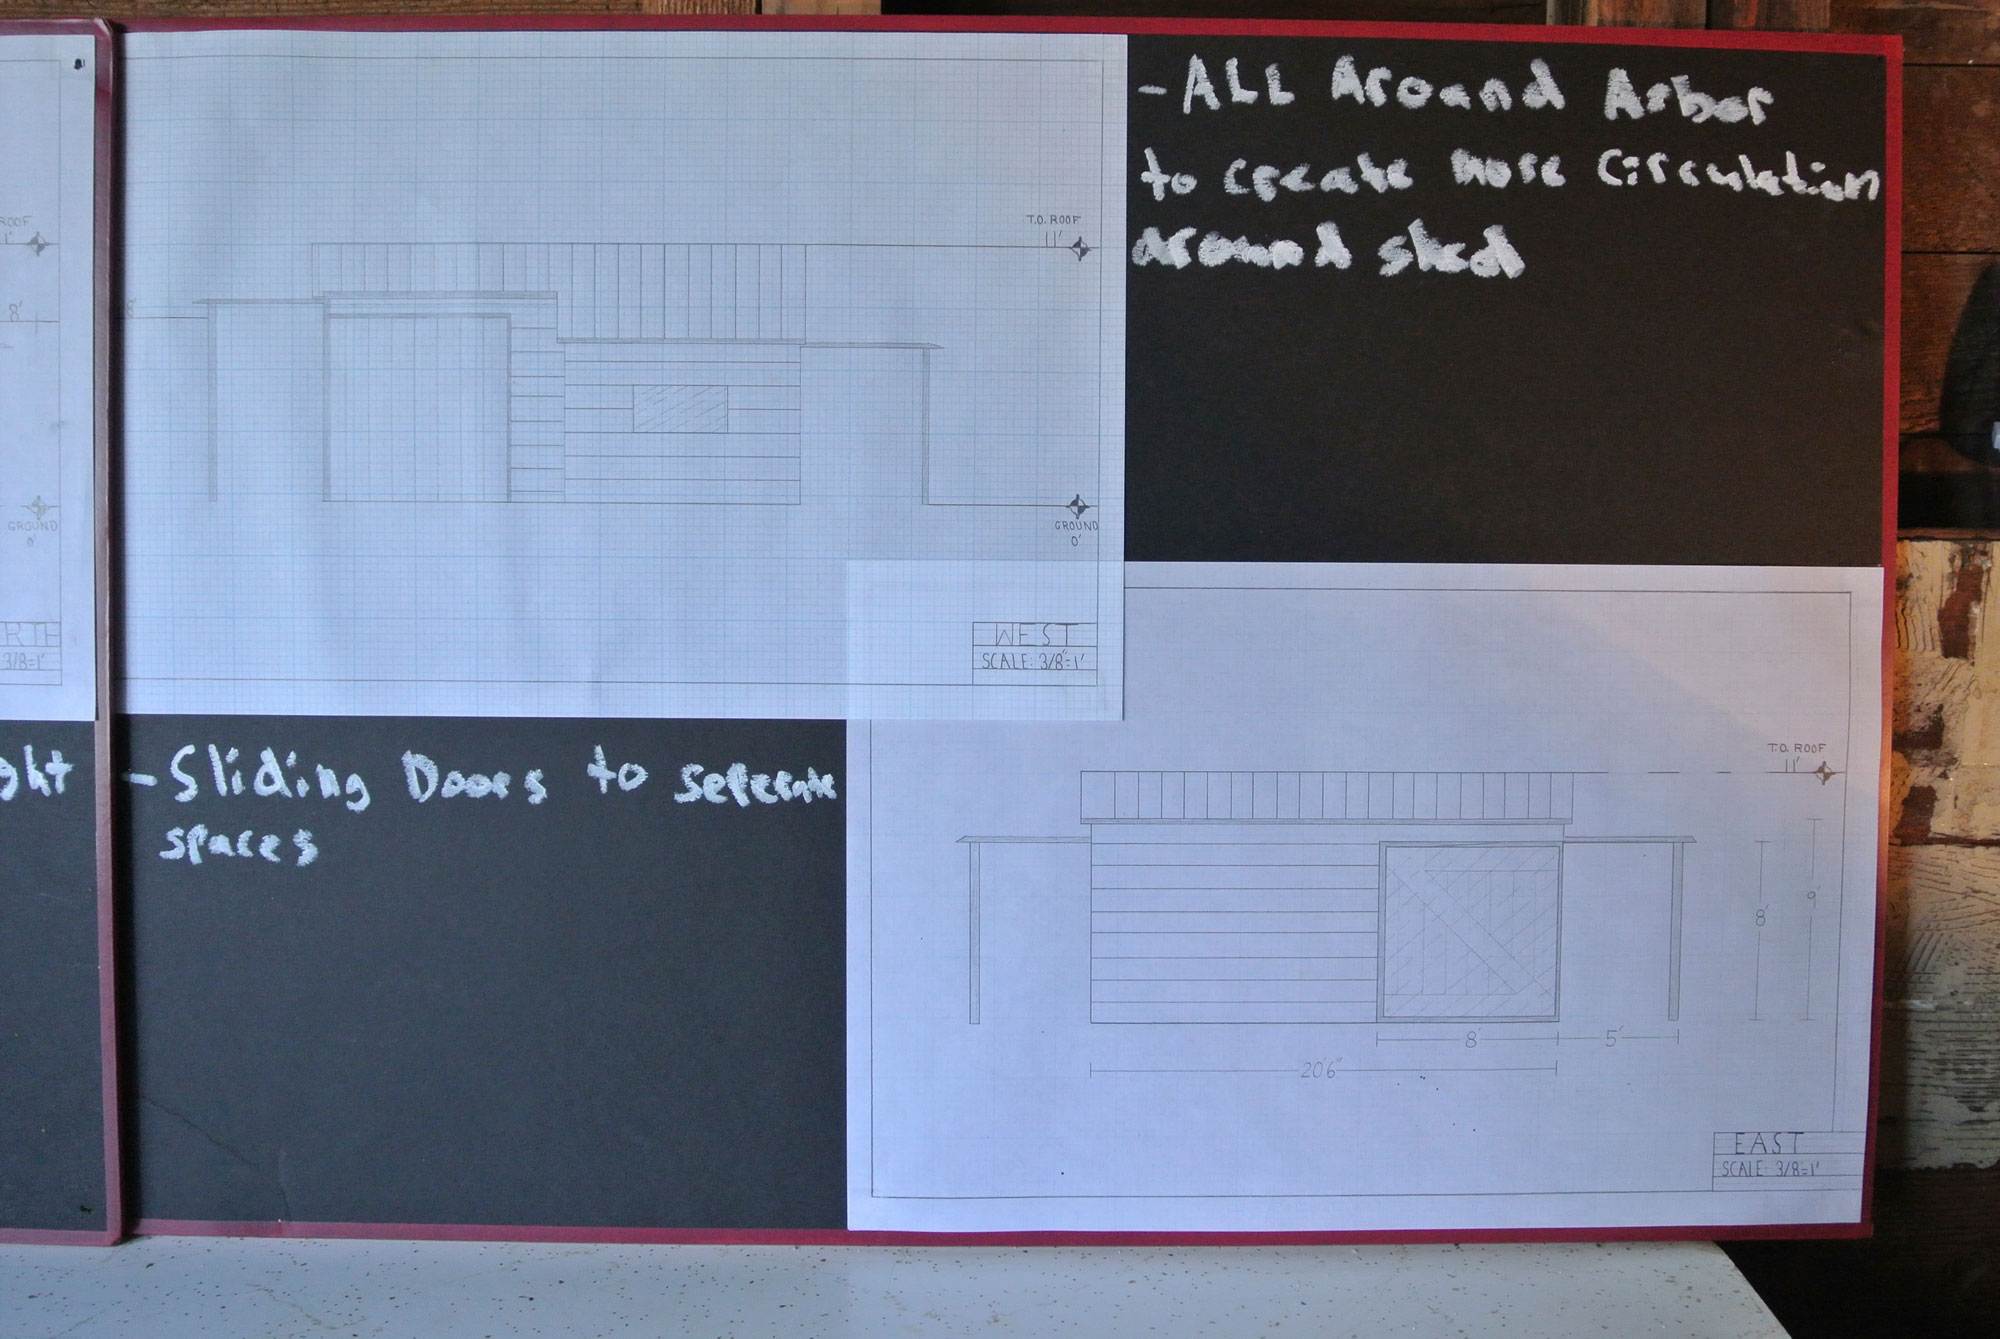 ROOF
1'
8'
GROUND
0'
RTH
3/8=1'
T.O. ROOF
11'
8'
GROUND
0'
WEST
SCALE: 3/8"=1'
- ALL Around Arbor
to create more Circulation
around shed
ght
- Sliding Doors to seperate
spaces
T.O. ROOF
11'
8'
9'
8'
5'
20'6"
EAST
SCALE: 3/8=1'